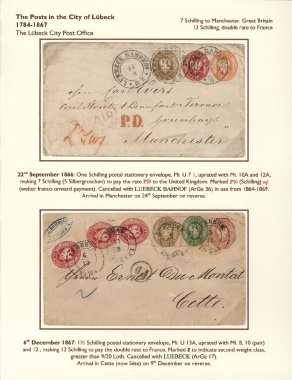 The Posts in the City of Lübeck
1784-1867
The Lübeck City Post Office
7 Schilling to Manchester, Great Britain
12 Schilling, double rate to France
LUEBECK BAHNHOF
PAID
P.D.
Manchester
22nd September 1866: One Schilling postal stationery envelope, Mi. U 7 I, uprated with Mi. 10A and 12A,
making 7 Schilling (5 Silbergroschen) to pay the rate PD to the United Kingdom. Marked (Schilling) wf
(weiter franco onward payment). Cancelled with LUEBECK BAHNOF (ArGe 36) in use from 1864-1869.
Arrival in Manchester on 24th September on reverse.
Ernest Du Montal
Cette
6th December 1867: 1½ Schilling postal stationery envelope, Mi. U 13A, uprated with Mi. 8, 10 (pair)
and 12, making 12 Schilling to pay the double rate to France. Marked 2 to indicate second weight class,
greater than 9/20 Loth. Cancelled with LÜBECK (ArGe 17).
Arrival in Cette (now Sète) on 9th December on reverse.